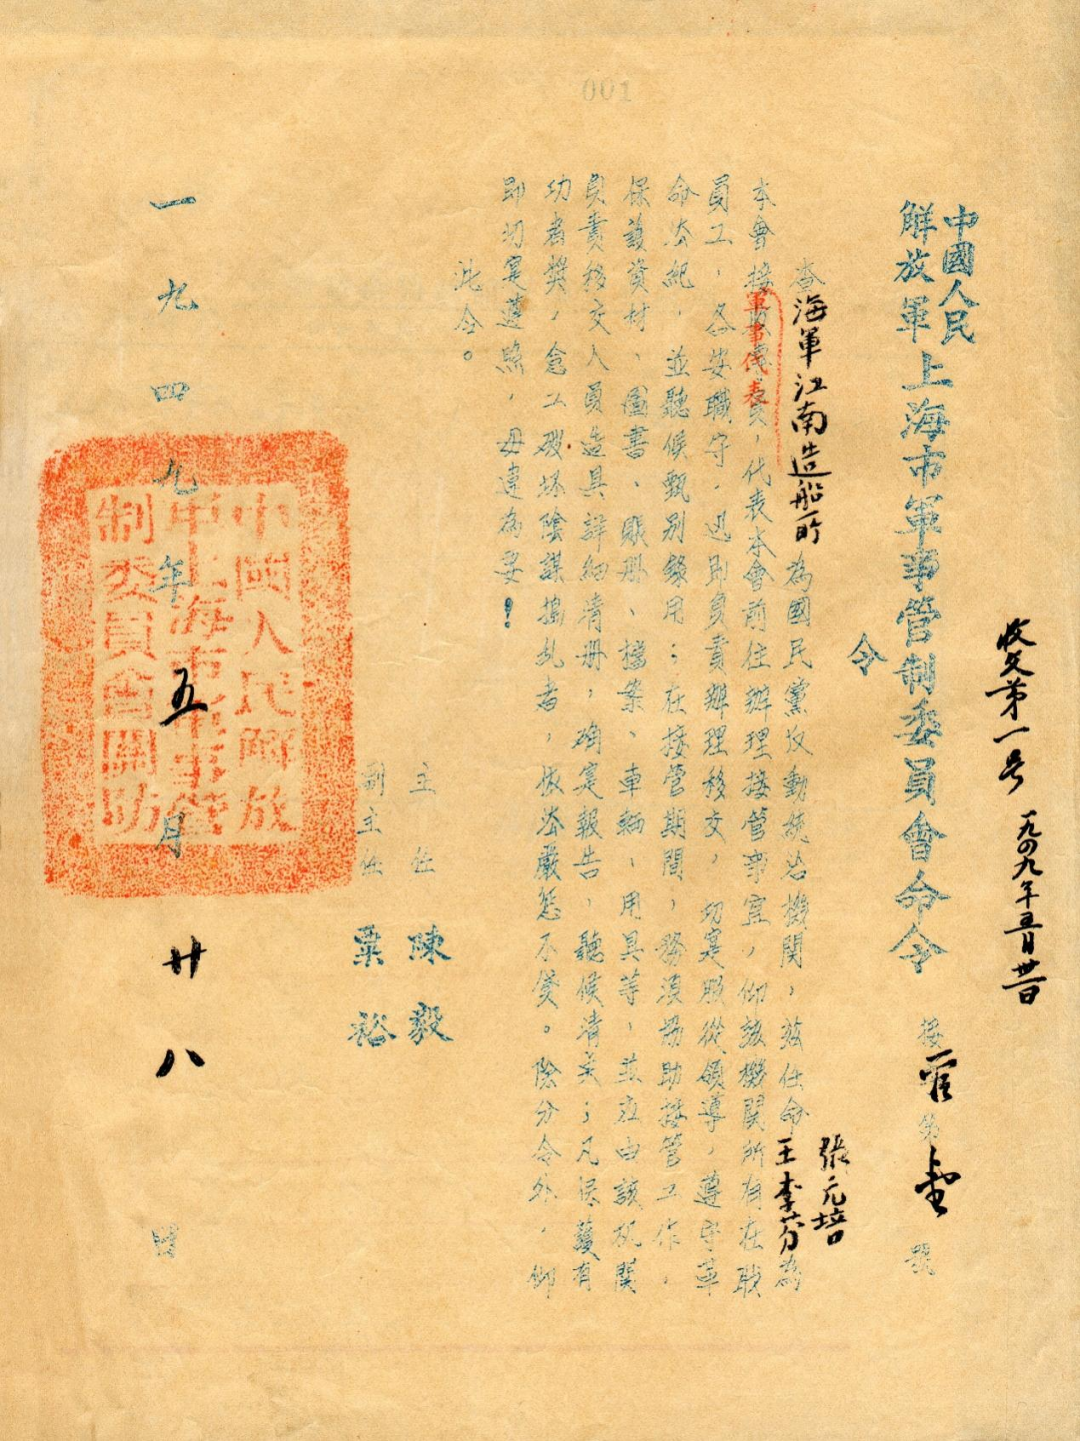 001
收文第一号 一九四九年五月廿八日
中國人民
解放軍
上海市軍事管制委員會命令 接管第壹號
令
張元培
查海軍江南造船所為國民黨反動統治機關，茲任命王李芬為
軍事代表
本會接收專員，代表本會前往辦理接管事宜，仰該機關所有在職
員工，各安職守，迅即負責辦理移交，切实服從領導，遵守革
命法紀，並聽候甄別錄用；在接管期間，務須協助接管工作，
保護資材、圖書、賬册、檔案、車輛、用具等，並应由該机関
負責移交人員造具詳細清册，确实報告，聽候清点；凡保護有
功者獎，怠工破坏陰謀搗乱者，依法嚴懲不貸。除分令外，仰
即切实遵照，毋違為要！
此令。
主任 陳毅
副主任 粟裕
一九四九年五月廿八日
中國人民解放
軍上海市軍事管
制委員會關防